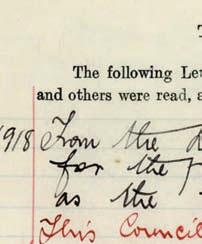 The following Le
and others were read, a
1918 From the
for the
as the
This Council